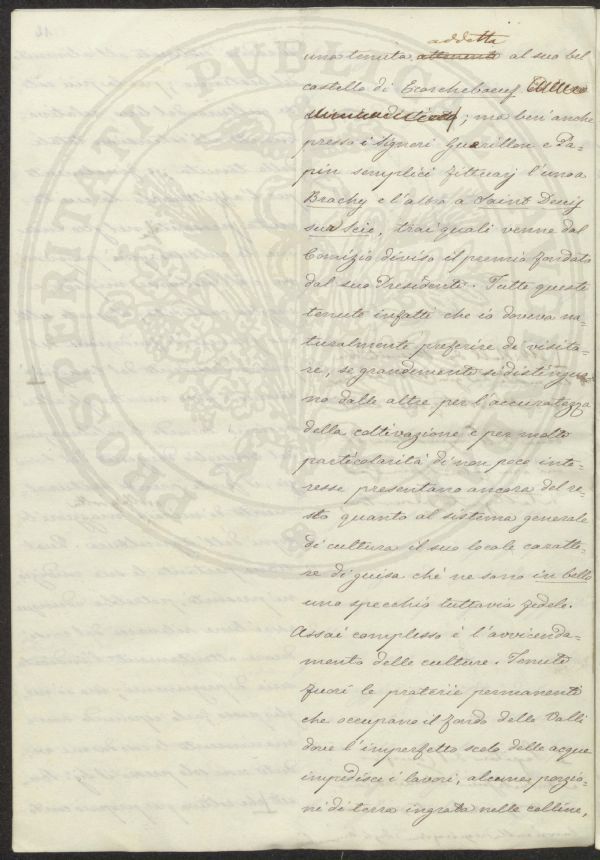 addetta
una tenuta attenente al suo bel
castello di Ecorcheboeuf
; ma ben' anche
presso i Signori Guerillon e Pa-
pin semplici fittuarj l'uno a
Brachy e l'altro a Saint Denis
sur Scie, trai quali venne dal
Comizio diviso il premio fondato
dal suo Presidente. Tutte queste
tenute infatti che io doveva na-
turalmente preferire di visita-
re, se grandemente si distinguo-
no dalle altre per l'accuratezza
della coltivazione e per molte
particolarità di non poco inte-
resse presentano ancora del re-
sto quanto al sistema generale
di cultura il suo locale caratte-
re di guisa che ne sono in bello
uno specchio tuttavia fedele.
Assai complesso è l'avvicenda-
mento delle culture. Tenute
fuori le praterie permanenti
che occupano il fondo delle Valli
dove l'imperfetto scolo delle acque
impedisce i lavori, alcune porzio-
ni di terra ingrata nelle colline,
PROSPERITATI PUBLICAE